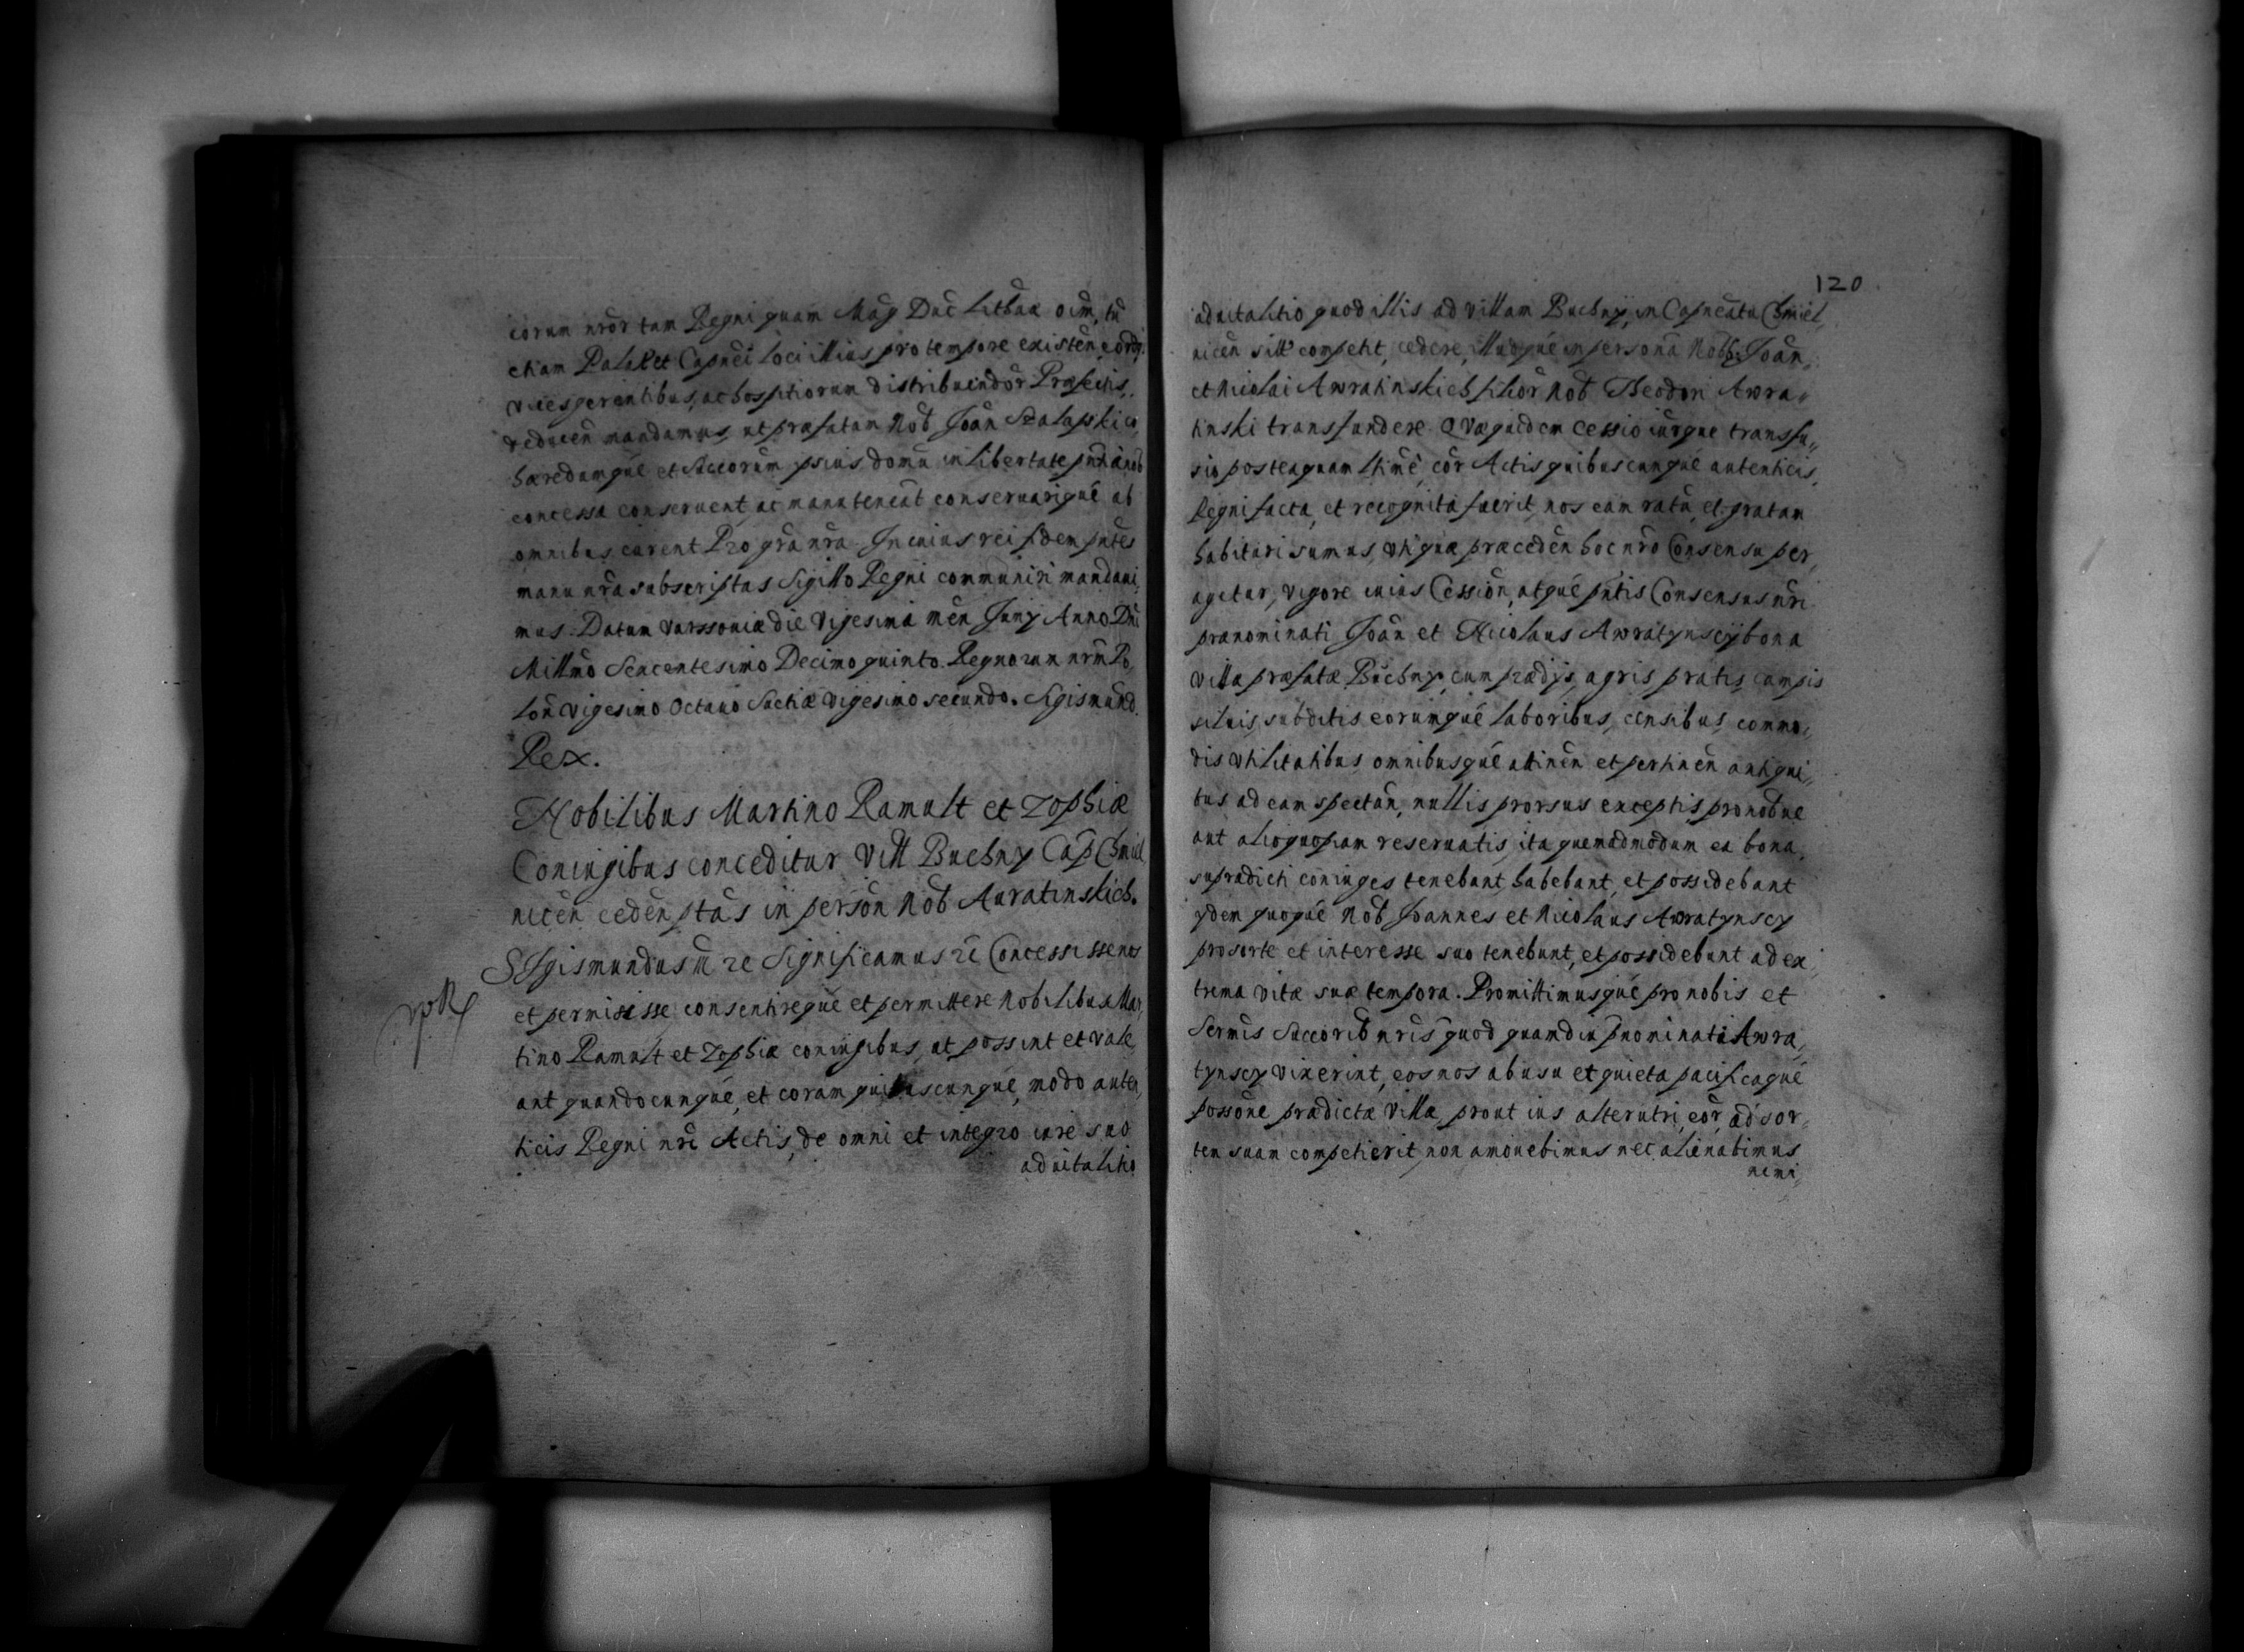 corum nror tam Regni quam Mag Duc Lithuae oim, tu
etiam Palat et Capnei loci illius pro tempore existen, eorq
vices gerentibus, ac hospitiorum distribuendor Praefectis,
reducen mandamus, ut praefatam Nob Joan Szalapski eo,
haredumque et succorum ipsius domu in libertate
concessa conseruent ac manuteneat conseruarique ab
omnibus curent Pro gra nra. In cuius rei fidem pntes
manu nra subscriptas Sigillo Regni communiri mandaui,
mus. Datum Varssouiae die Vigesima men Juny Anno Dni
Millmo Sexcentesimo Decimo quinto. Regnorum nrm Po,
lon Vigesimo Octauo Suetiae Vigesimo secundo. Sigismund
Rex.
Nobilibus Martino Ramult et Zophiae
Coniugibus conceditur Vill Buchny Cap Chmiel,
nicen ceden ptas in person Nob Auratinskich.
SIgismundus III re Significamus re Concessisse nos
et permisisse consentireque et permittere Nobilibus Mar,
tino Ramult et Zophiae coniugibus, ut possint et vale,
ant quandocunque, et coram quibuscunque, modo auten,
ticis Regni nri Actis, de omni et integro iure suo
aduitalitio
120
aduitalitio quod illis ad villam Buchny, in Capneatu Chmiel,
nicen sitt competit, cedere, illudque in persona Nobb. Joan,
et Nicolai Awratinskich filior Nob Theodori Awra,
tinski transfundere. Quae quidem Cessio iurque transfu,,
sio posteaquam ltime, cor Actis quibuscunque autenticis,
Regni facta, et recognita fuerit, nos eam ratu, et gratam
habituri sumus, vti quae praeceden hoc nro Consensu per,
agetur, vigore cuius Cession, atque pntis Consensus nri
pranominati Joan et Nicolaus Awratynscy bona
villa praefatae Buchny, cum praedys, agris pratis, campis
siluis, subditis eorumque laboribus, censibus, commo,
dis vtilitatibus omnibusque attinen et pertinen antiqui,
tus ad eam spectan, nullis prorsus exceptis, pronobue
aut alio quopiam reseruatis, ita quemadmodum ea bona,
supradicti coniuges tenebant, habebant, et possidebant
ydem quoque Nob Joannes et Nicolaus Awratynscy
pro sorte et interesse suo tenebunt, et possidebunt ad ex,
trema vitae suae tempora. Promittimusque pro nobis et
Sermis Succorib nris quod quamdiu pnominati Awra,
tynscy vixerint, eos nos ab usu et quieta pacificaque
possone praedictae Villae, prout ius alterutri, eor, ad sor,
tem suam competierit, non amouebimus nec alienabimus
nemi,